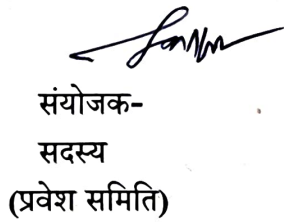 संयोजक-
सदस्य
(प्रवेश समिति)